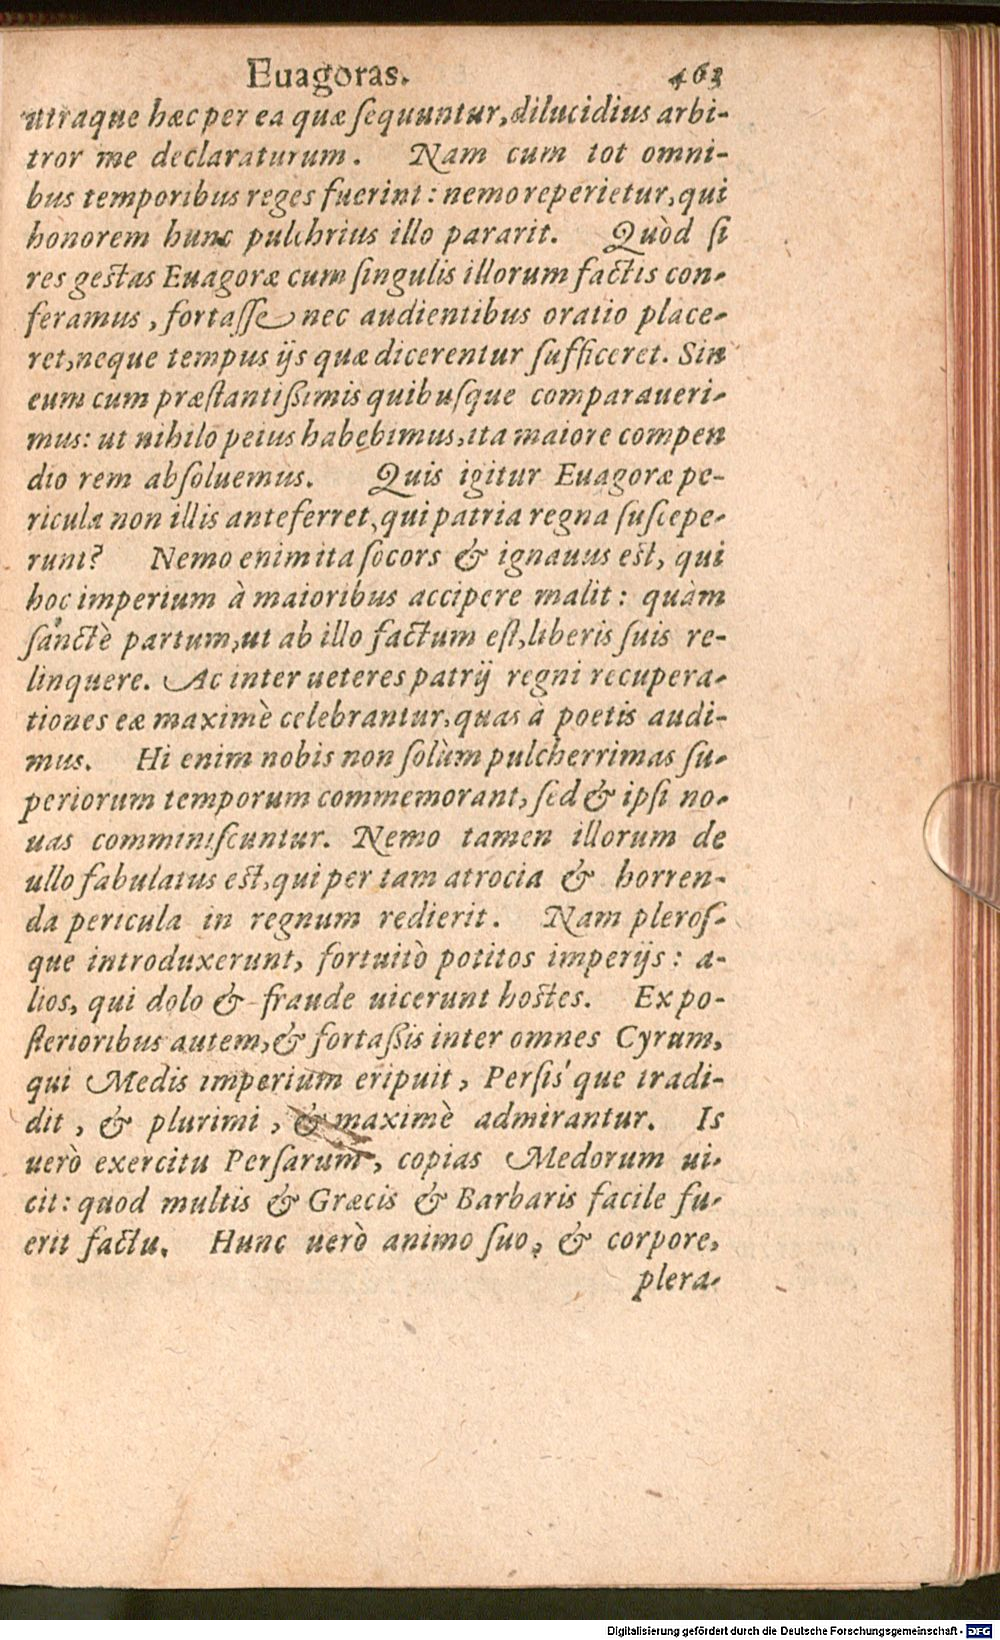 Euagoras. 463
utraque hæc per ea quæ ſequuntur, dilucidius arbi-
tror me declaraturum. Nam cum tot omni-
bus temporibus reges fuerint: nemo reperietur, qui
honorem hunc pulchrius illo pararit. Quòd ſi
res geſtas Euagoræ cum ſingulis illorum factis con-
feramus, fortaſſe nec audientibus oratio place-
ret, neque tempus ijs quæ dicerentur ſufficeret. Sin
eum cum præſtantißimis quibuſque comparaueri-
mus: ut nihilo peius habebimus, ita maiore compen
dio rem abſoluemus. Quis igitur Euagoræ pe-
ricula non illis anteferret, qui patria regna ſuſcepe-
runt? Nemo enim ita ſocors & ignauus eſt, qui
hoc imperium à maioribus accipere malit: quàm
ſanctè partum, ut ab illo factum eſt, liberis ſuis re-
linquere. Ac inter ueteres patrij regni recupera-
tiones eæ maximè celebrantur, quas à poetis audi-
mus. Hi enim nobis non ſolùm pulcherrimas ſu-
periorum temporum commemorant, ſed & ipſi no-
uas comminiſcuntur. Nemo tamen illorum de
ullo fabulatus eſt, qui per tam atrocia & horren-
da pericula in regnum redierit. Nam pleroſ-
que introduxerunt, fortuitò potitos imperijs: a-
lios, qui dolo & fraude uicerunt hoſtes. Ex po-
ſterioribus autem, & fortaßis inter omnes Cyrum,
qui Medis imperium eripuit, Perſis'que tradi-
dit, & plurimi, & maximè admirantur. Is
uerò exercitu Perſarum, copias Medorum ui-
cit: quod multis & Græcis & Barbaris facile fu-
erit factu. Hunc uerò animo ſuo, & corpore,
plera-
Digitalisierung gefördert durch die Deutsche Forschungsgemeinschaft - DFG